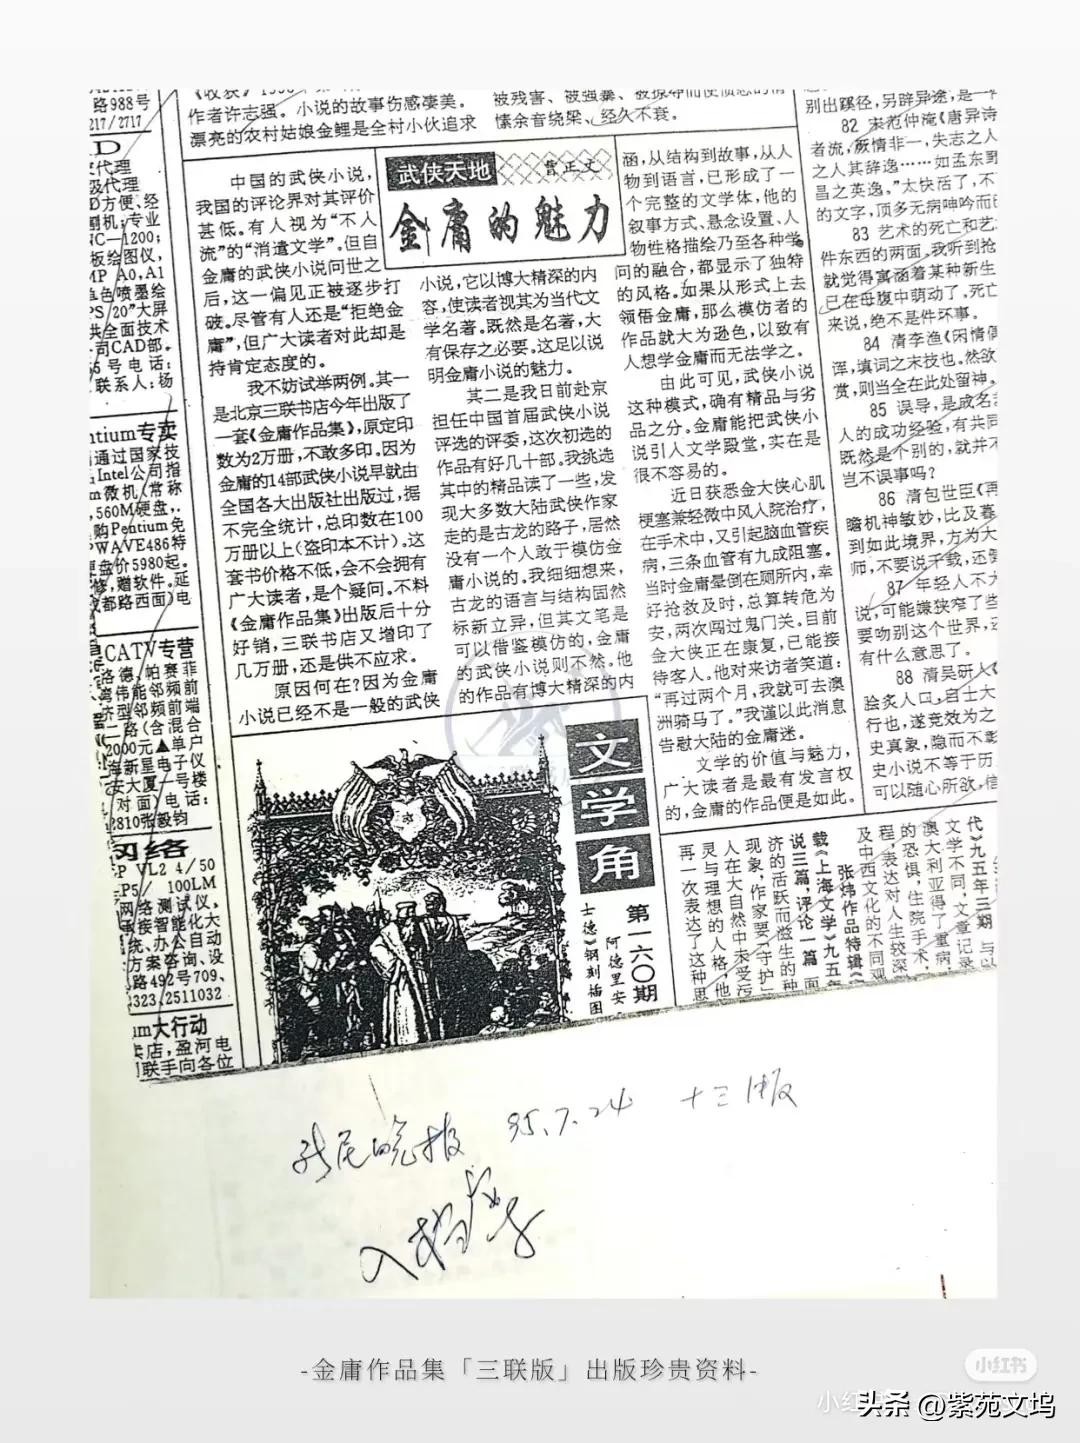 路988号
217/2717
D
代理
级代理
D方便、经
刷机;专业
NC—1200;
板绘图仪,
MP A0,A1
色喷墨绘
PS 20"大屏
共全面技术
司CAD部。
5号电话:
联系人:杨
entium专卖
通过国家技
Intel公司指
m微机(常称
,560M硬盘,.
购Pentium免
WAVE486特
盘价5980起。
修,赠软件。延
成都路西面)电
CATV专营
洛德,帕赛菲
粤伟能邻频前
齐型邻频前端
一路(含混合
2000元▲单户
海新里电子仪
安大厦一号楼
对面)电话:
2810张毅钧
网络
EP VL2 4/50
P5/ 100LM
网络测试仪,
承接智能化大
统、办公自动
方案咨询、设
路492号709、
323,2511032
um大行动
卖店,盈河电
联手向各位
作者许志强。小说的故事伤感凄美。
漂亮的农村姑娘金鲤是全村小伙追求
愫余音绕梁、经久不衰。
武侠天地
曹正文
金庸的魅力
中国的武侠小说,
我国的评论界对其评价
甚低。有人视为“不人
流”的“消遣文学”。但自
金庸的武侠小说问世之
后,这一偏见正被逐步打
破。尽管有人还是“拒绝金
庸”,但广大读者对此却是
持肯定态度的。
我不妨试举两例。其一
是北京三联书店今年出版了
一套《金庸作品集》,原定印
数为2万册,不敢多印。因为
金庸的14部武侠小说早就由
全国各大出版社出版过,据
不完全统计,总印数在100
万册以上(盗印本不计)。这
套书价格不低,会不会拥有
广大读者,是个疑问。不料
《金庸作品集》出版后十分
好销,三联书店又增印了
几万册,还是供不应求。
原因何在?因为金庸
小说已经不是一般的武侠
小说,它以博大精深的内
容,使读者视其为当代文
学名著。既然是名著,大
有保存之必要。这足以说
明金庸小说的魅力。
其二是我日前赴京
担任中国首届武侠小说
评选的评委,这次初选的
作品有好几十部。我挑选
其中的精品读了一些,发
现大多数大陆武侠作家
走的是古龙的路子,居然
没有一个人敢于模仿金
庸小说的。我细细想来,
古龙的语言与结构固然
标新立异,但其文笔是
可以借鉴模仿的,金庸
的武侠小说则不然。他
的作品有博大精深的内
涵,从结构到故事,从人
物到语言,已形成了一
个完整的文学体,他的
叙事方式、悬念设置、人
物性格描绘乃至各种学
问的融合,都显示了独特
的风格。如果从形式上去
领悟金庸,那么模仿者的
作品就大为逊色,以致有
人想学金庸而无法学之。
由此可见,武侠小说
这种模式,确有精品与劣
品之分。金庸能把武侠小
说引人文学殿堂,实在是
很不容易的。
近日获悉金大侠心肌
梗塞兼轻微中风人院治疗,
在手术中,又引起脑血管疾
病,三条血管有九成阻塞。
当时金庸晕倒在厕所内,幸
好抢救及时,总算转危为
安,两次闯过鬼门关。目前
金大侠正在康复,已能接
待客人。他对来访者笑道:
“再过两个月,我就可去澳
洲骑马了。”我谨以此消息
告慰大陆的金庸迷。
文学的价值与魅力,
广大读者是最有发言权
的,金庸的作品便是如此。
别出蹊径,另辟异途,是一
82 宋范仲淹《唐异诗
者流,厥情非一,失志之人
之人其辞逸……如孟东野
昌之英逸。”太快活了,不
的文字,顶多无病呻吟而已
83 艺术的死亡和艺
件东西的两面。我听到抢
就觉得寓涵着某种新生
已在母腹中萌动了,死亡
来说,绝不是件坏事。
84 清李渔《闲情偶
浑,填词之末技也。然欲
赏,则当全在此处留神。
85 误导,是成名
人的成功经验,有共同
既然是个别的,就并不
岂不误事吗?
86 清包世臣《再
瞻机神敏妙,比及暮
到如此境界,方为大
师,不要说千载,还
87 年轻人不
说,可能嫌狭窄了些
要吻别这个世界,还
有什么意思了。
88 清吴研人《
脍炙人口,自士大
行也,遂竞效为之
史真象,隐而不彰
史小说不等于历
可以随心所欲,信
文学角
第一六〇期
阿德里安
士(德)钢刻插图
代》九五年三期
文学不同,文章记录
澳大利亚得了重病,
的恐惧,住院手术,
程,表达对人生较深
及中西文化的不同观
张炜作品特辑《
载《上海文学》九五年
说三篇,评论一篇
济的活跃而溢生的种
现象,作家要“守护”
人在大自然中未受污
灵与理想的人格,他
再一次表达了这种思
新民晚报 95.7.24 十三版
-金庸作品集「三联版」出版珍贵资料-
小红书
头条 @紫苑文坞